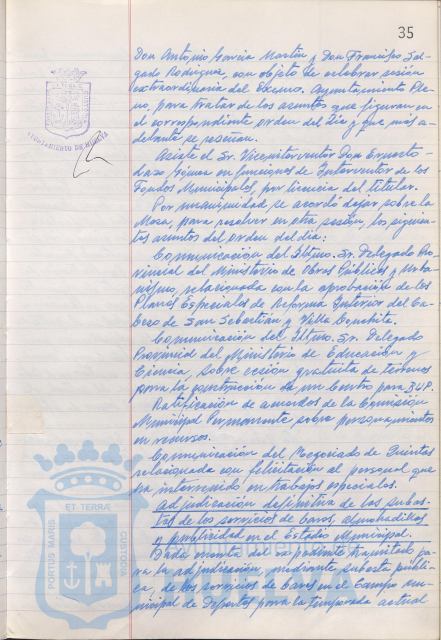 35
Don Antonio García Martín y Don Francisco Sal-
gado Rodríguez, con objeto de celebrar sesión
extraordinaria del Excmo. Ayuntamiento Ple-
no, para tratar de los asuntos que figuran en
el correspondiente orden del día y que más a-
delante se reseñan.
Asiste el Sr. Viceinterventor Don Ernesto
en funciones de Interventor de los
Fondos Municipales, por licencia del titular.
Por unanimidad se acordó dejar sobre la
Mesa, para resolver en otra sesión, los siguien-
tes asuntos del orden del día:
Comunicación del Iltmo. Sr. Delegado Pro-
vincial del Ministerio de Obras Públicas y Urba-
nismo, relacionada con la aprobación de los
Planes Especiales de Reforma Interior del Ca-
bezo de San Sebastián y Villa Conchita.
Comunicación del Iltmo. Sr. Delegado
Provincial del Ministerio de Educación y
Ciencia, sobre cesión gratuita de terrenos
para la construcción de un Centro para BUP.
Ratificación de acuerdos de la Comisión
Municipal Permanente sobre personamientos
en recursos.
Comunicación del Negociado de Quintas
relacionada con felicitación al personal que
ha intervenido en trabajos especiales.
Adjudicación definitiva de las subas-
tas de los servicios de bares, almohadillas
y publicidad en el Estadio Municipal.
Dada cuenta del expediente tramitado pa-
ra la adjudicación, mediante subasta públi-
ca, de los servicios de bares en el Campo mu-
nicipal de Deportes para la temporada actual
AYUNTAMIENTO DE HUELVA
PORTUS MARIS
ET TERRÆ
CUSTODIA